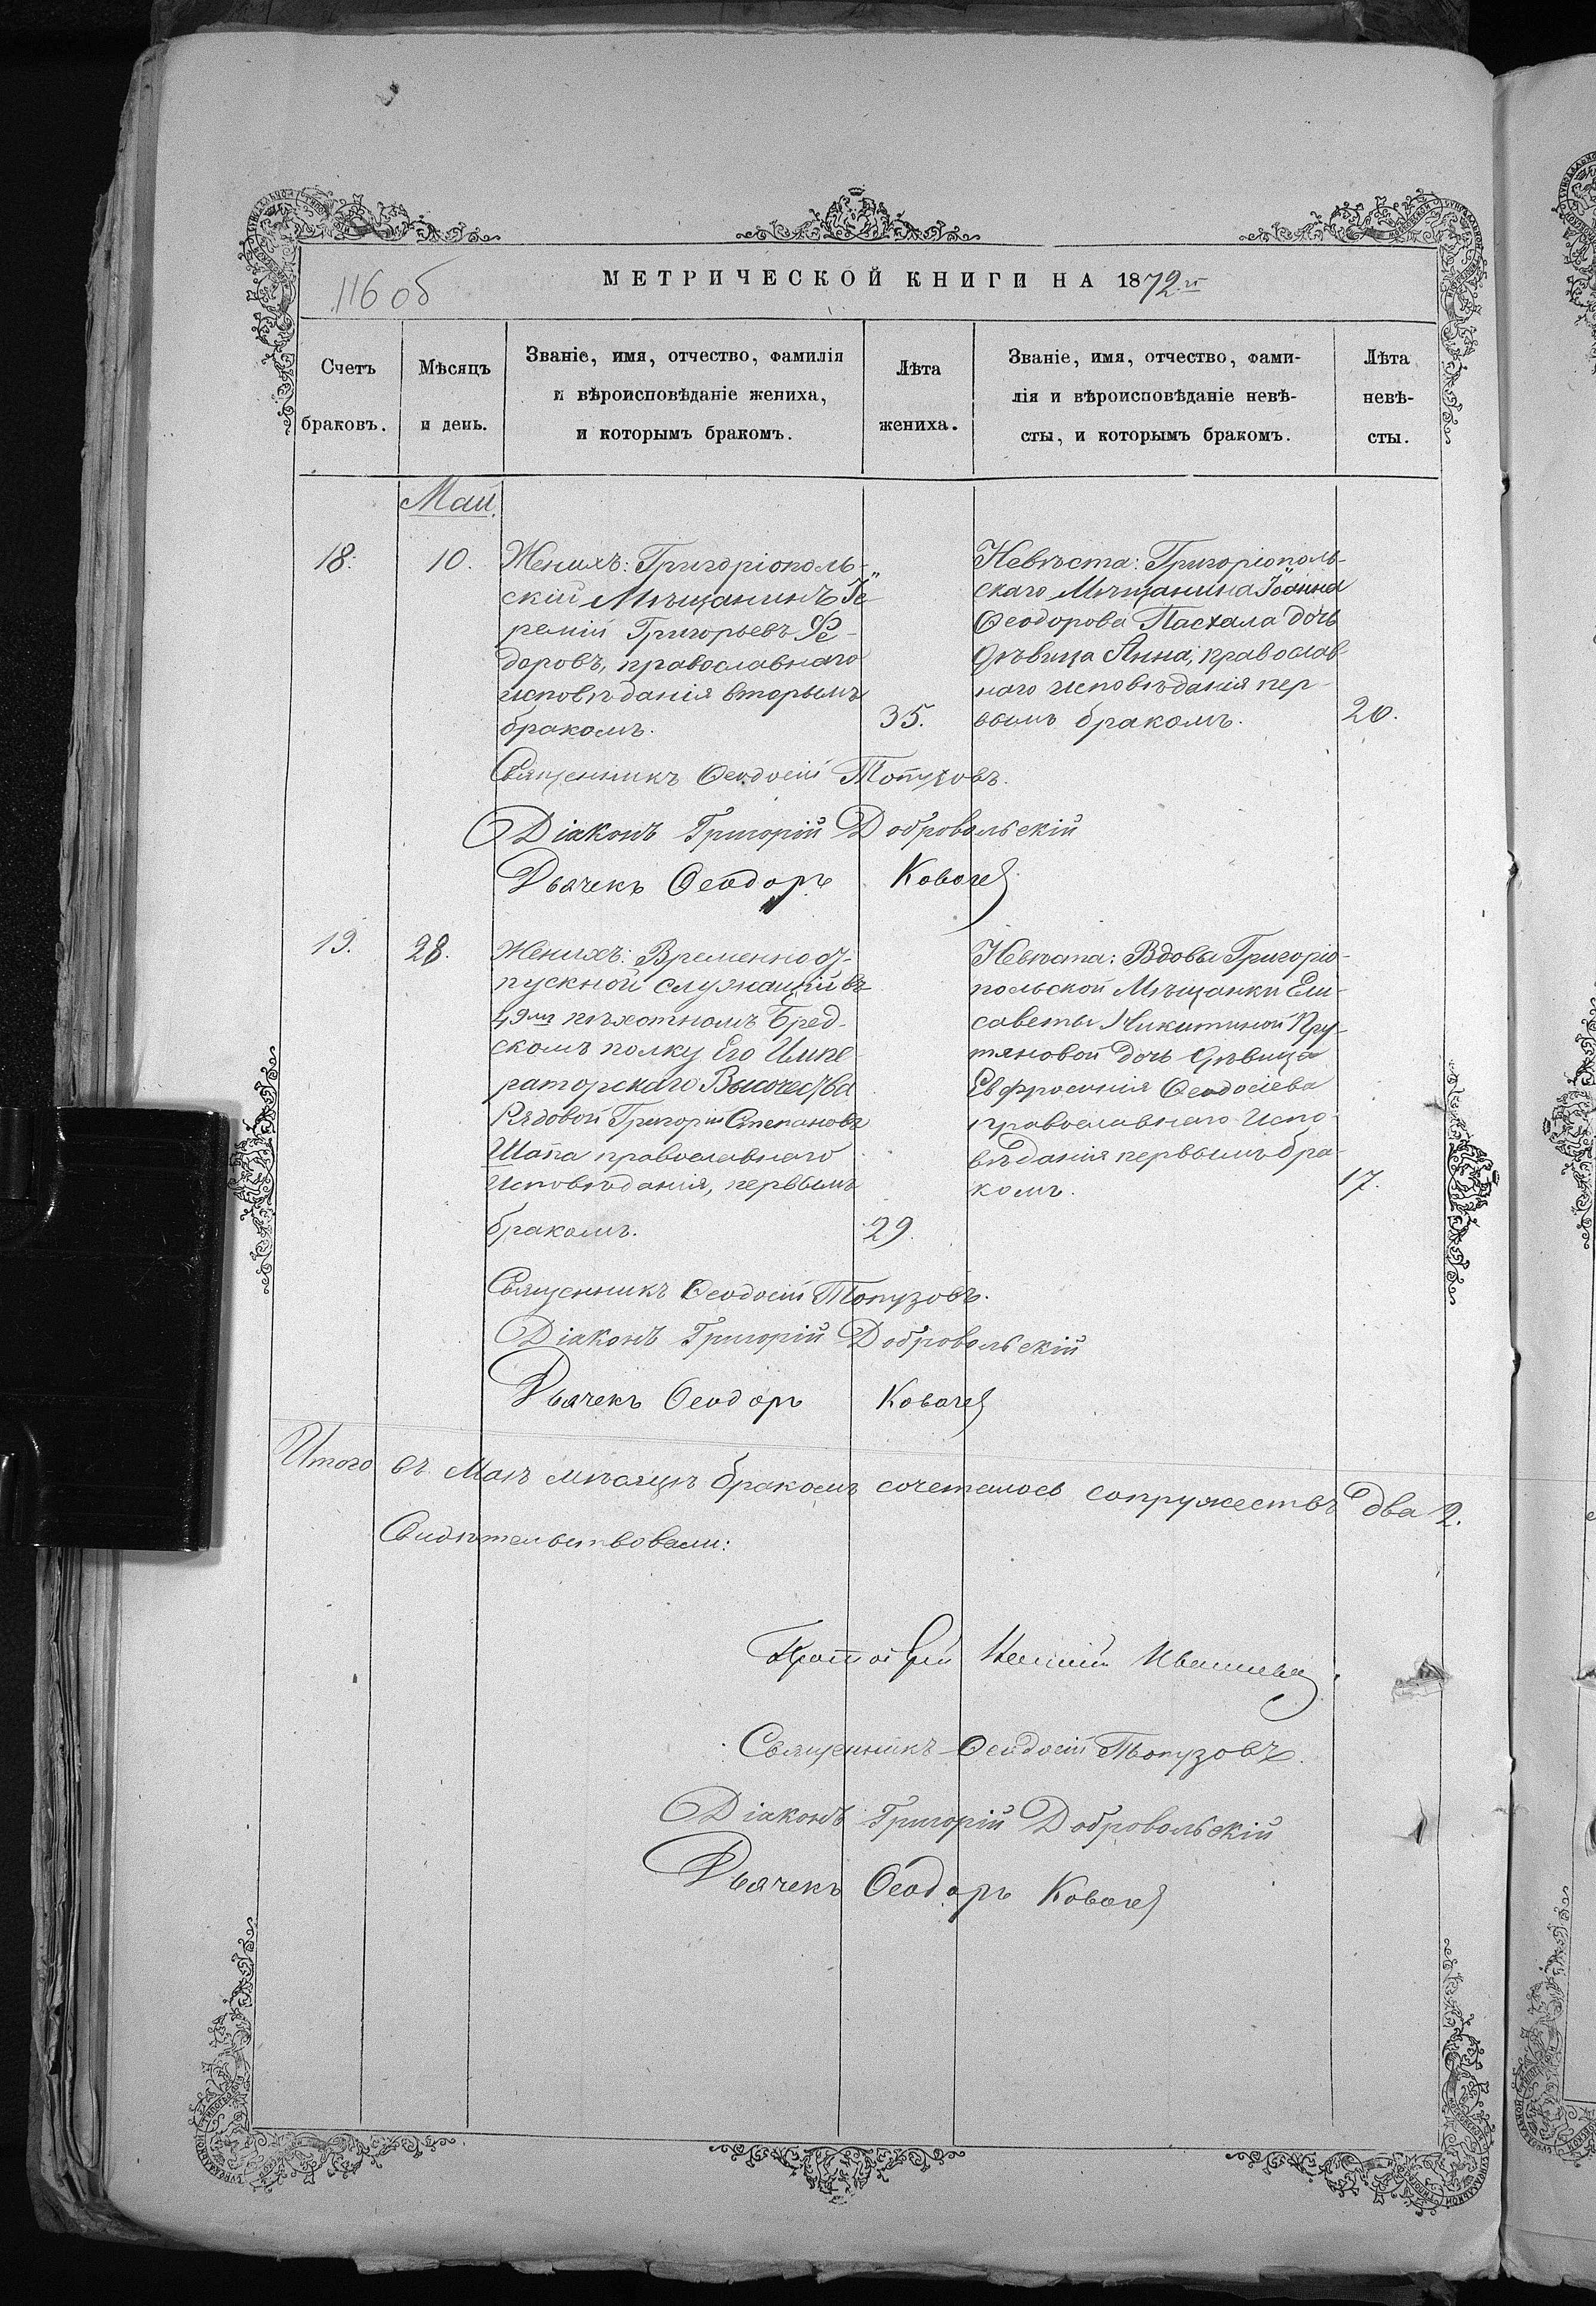 116 об
МЕТРИЧЕСКОЙ КНИГИ НА 1872 г.
Счетъ браковъ.
Мѣсяцъ и день.
Званіе, имя, отчество, фамилія
и вѣроисповѣданіе жениха,
и которымъ бракомъ.
Лѣта жениха.
Званіе, имя, отчество, фами-
лія и вѣроисповѣданіе невѣ-
сты, и которымъ бракомъ.
Лѣта невѣ-
сты.
Май.
18.
10.
Женихъ: Григоріополь-
скій Мѣщанинъ Іе-
ремій Григорьевъ Фе-
доровъ, православнаго
исповѣданія вторымъ
бракомъ.
35.
Невѣста: Григоріополь-
скаго Мѣщанина Іоанна
Ѳеодорова Пасхала дочь
Дѣвица Анна, православ-
наго исповѣданія пер-
вымъ бракомъ.
20.
Священникъ Ѳеодосій Топузовъ.
Діаконъ Григорій Добровольскій
Дьячекъ Ѳеодоръ Ковачъ
19.
28.
Женихъ: Временно от-
пускной служащій въ
49мъ пѣхотномъ Брест-
скомъ полку Его Импе-
раторскаго Высочества
Рядовой Григорій Степановъ
Шапа православнаго
Исповѣданія, первымъ
бракомъ.
29.
Невѣста: Вдовы Григоріо-
польской Мѣщанки Ели-
саветы Никитиной Пру-
тяновой дочь Дѣвица
Евфросинія Ѳеодосіева
православнаго Испо-
вѣданія первымъ бра-
комъ.
17.
Священникъ Ѳеодосій Топузовъ.
Діаконъ Григорій Добровольскій
Дьячекъ Ѳеодоръ Ковачъ
Итого въ Маѣ мѣсяцѣ бракомъ сочеталось супружествъ два 2.
Свидѣтельствовали:
Протоіерей
Священникъ Ѳеодосій Топузовъ.
Діаконъ Григорій Добровольскій
Дьячекъ Ѳеодоръ Ковачъ